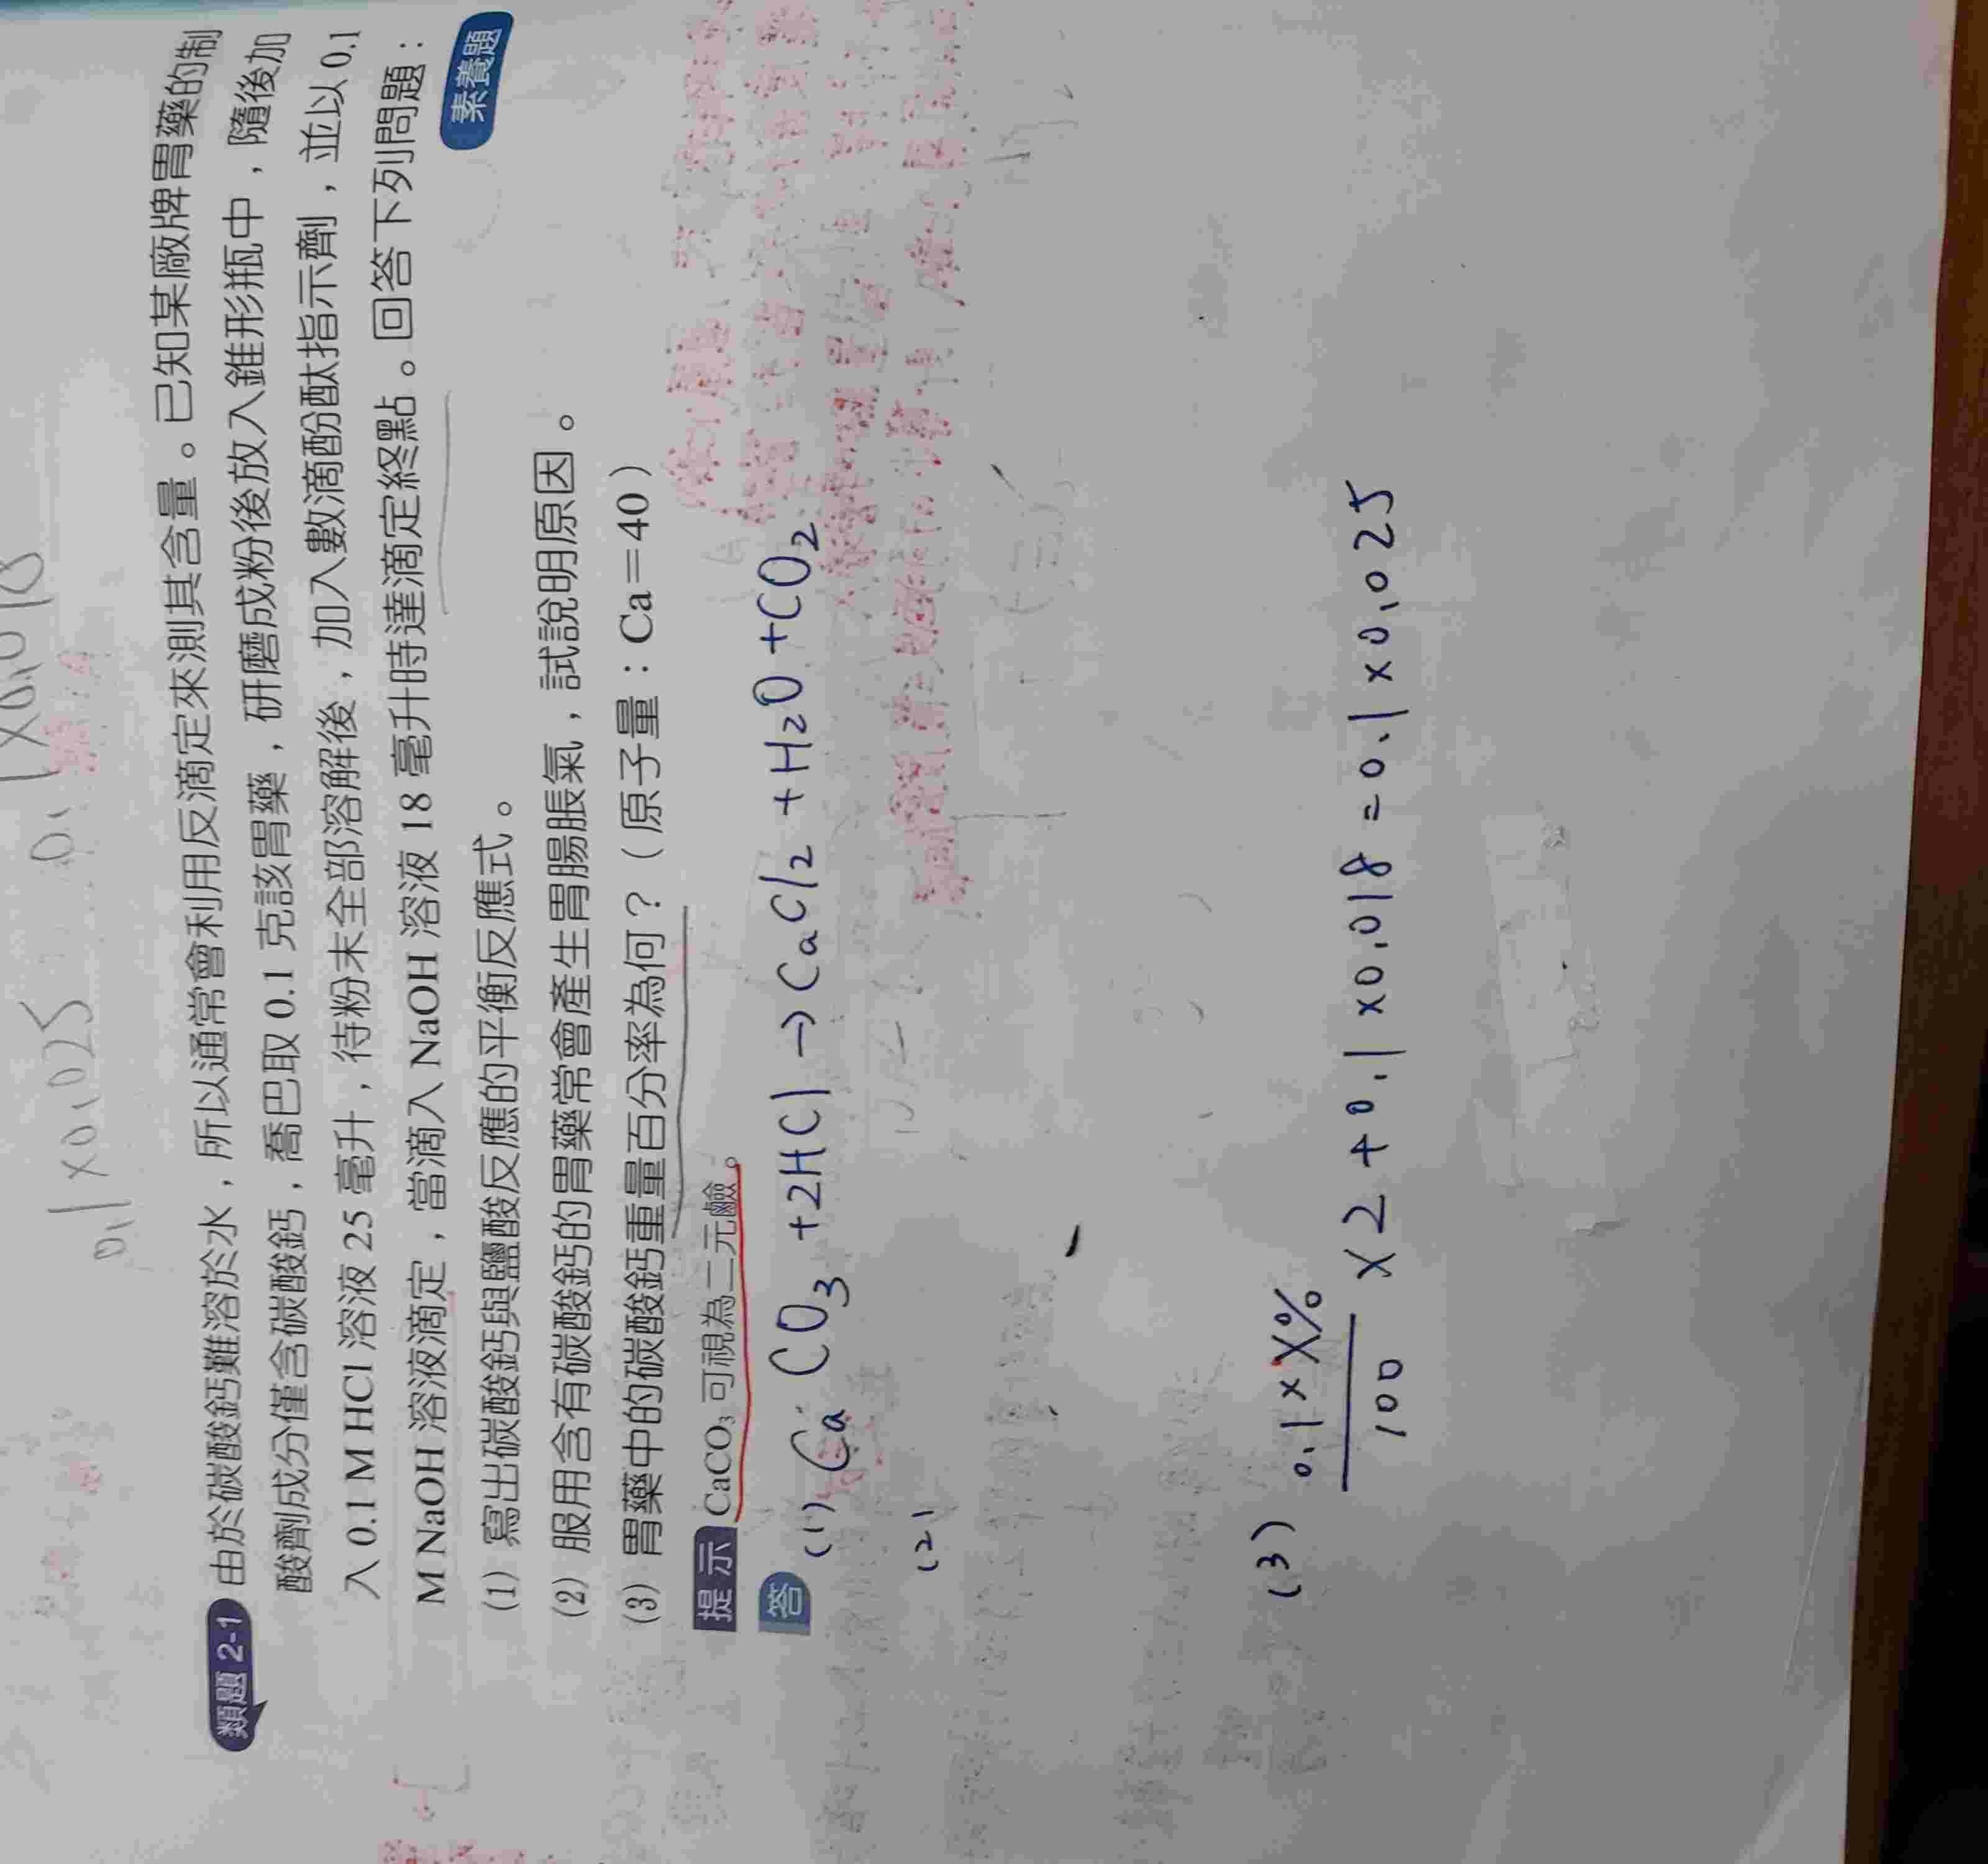 0.1×0.025 0.1×0.018
類題 2-1 由於碳酸鈣難溶於水，所以通常會利用反滴定來測其含量。已知某廠牌胃藥的制
酸劑成分僅含碳酸鈣，喬巴取 0.1 克該胃藥，研磨成粉後放入錐形瓶中，隨後加
入 0.1 M HCl 溶液 25 毫升，待粉末全部溶解後，加入數滴酚酞指示劑，並以 0.1
M NaOH 溶液滴定，當滴入 NaOH 溶液 18 毫升時達滴定終點。回答下列問題：
素養題
(1) 寫出碳酸鈣與鹽酸反應的平衡反應式。
(2) 服用含有碳酸鈣的胃藥常會產生胃腸脹氣，試說明原因。
(3) 胃藥中的碳酸鈣重量百分率為何？（原子量：Ca＝40）
提示 CaCO₃ 可視為二元鹼。
答 (1) CaCO₃ +2HCl → CaCl₂ + H₂O + CO₂
(2)
(3) 0.1×X%/100 ×2 +0.1×0.018 = 0.1×0.025